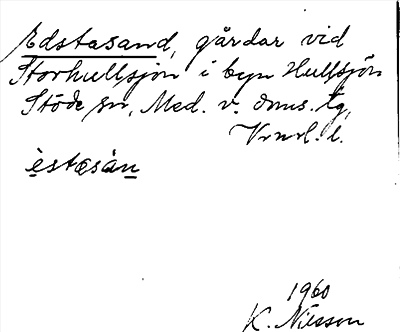 Edstasand, gårdar vid
Storhullsjön i byn Hullsjön
Stöde sn, Med. v. doms. tg,
Vrnrl. l.
èstasàn
1960
K. Nilsson